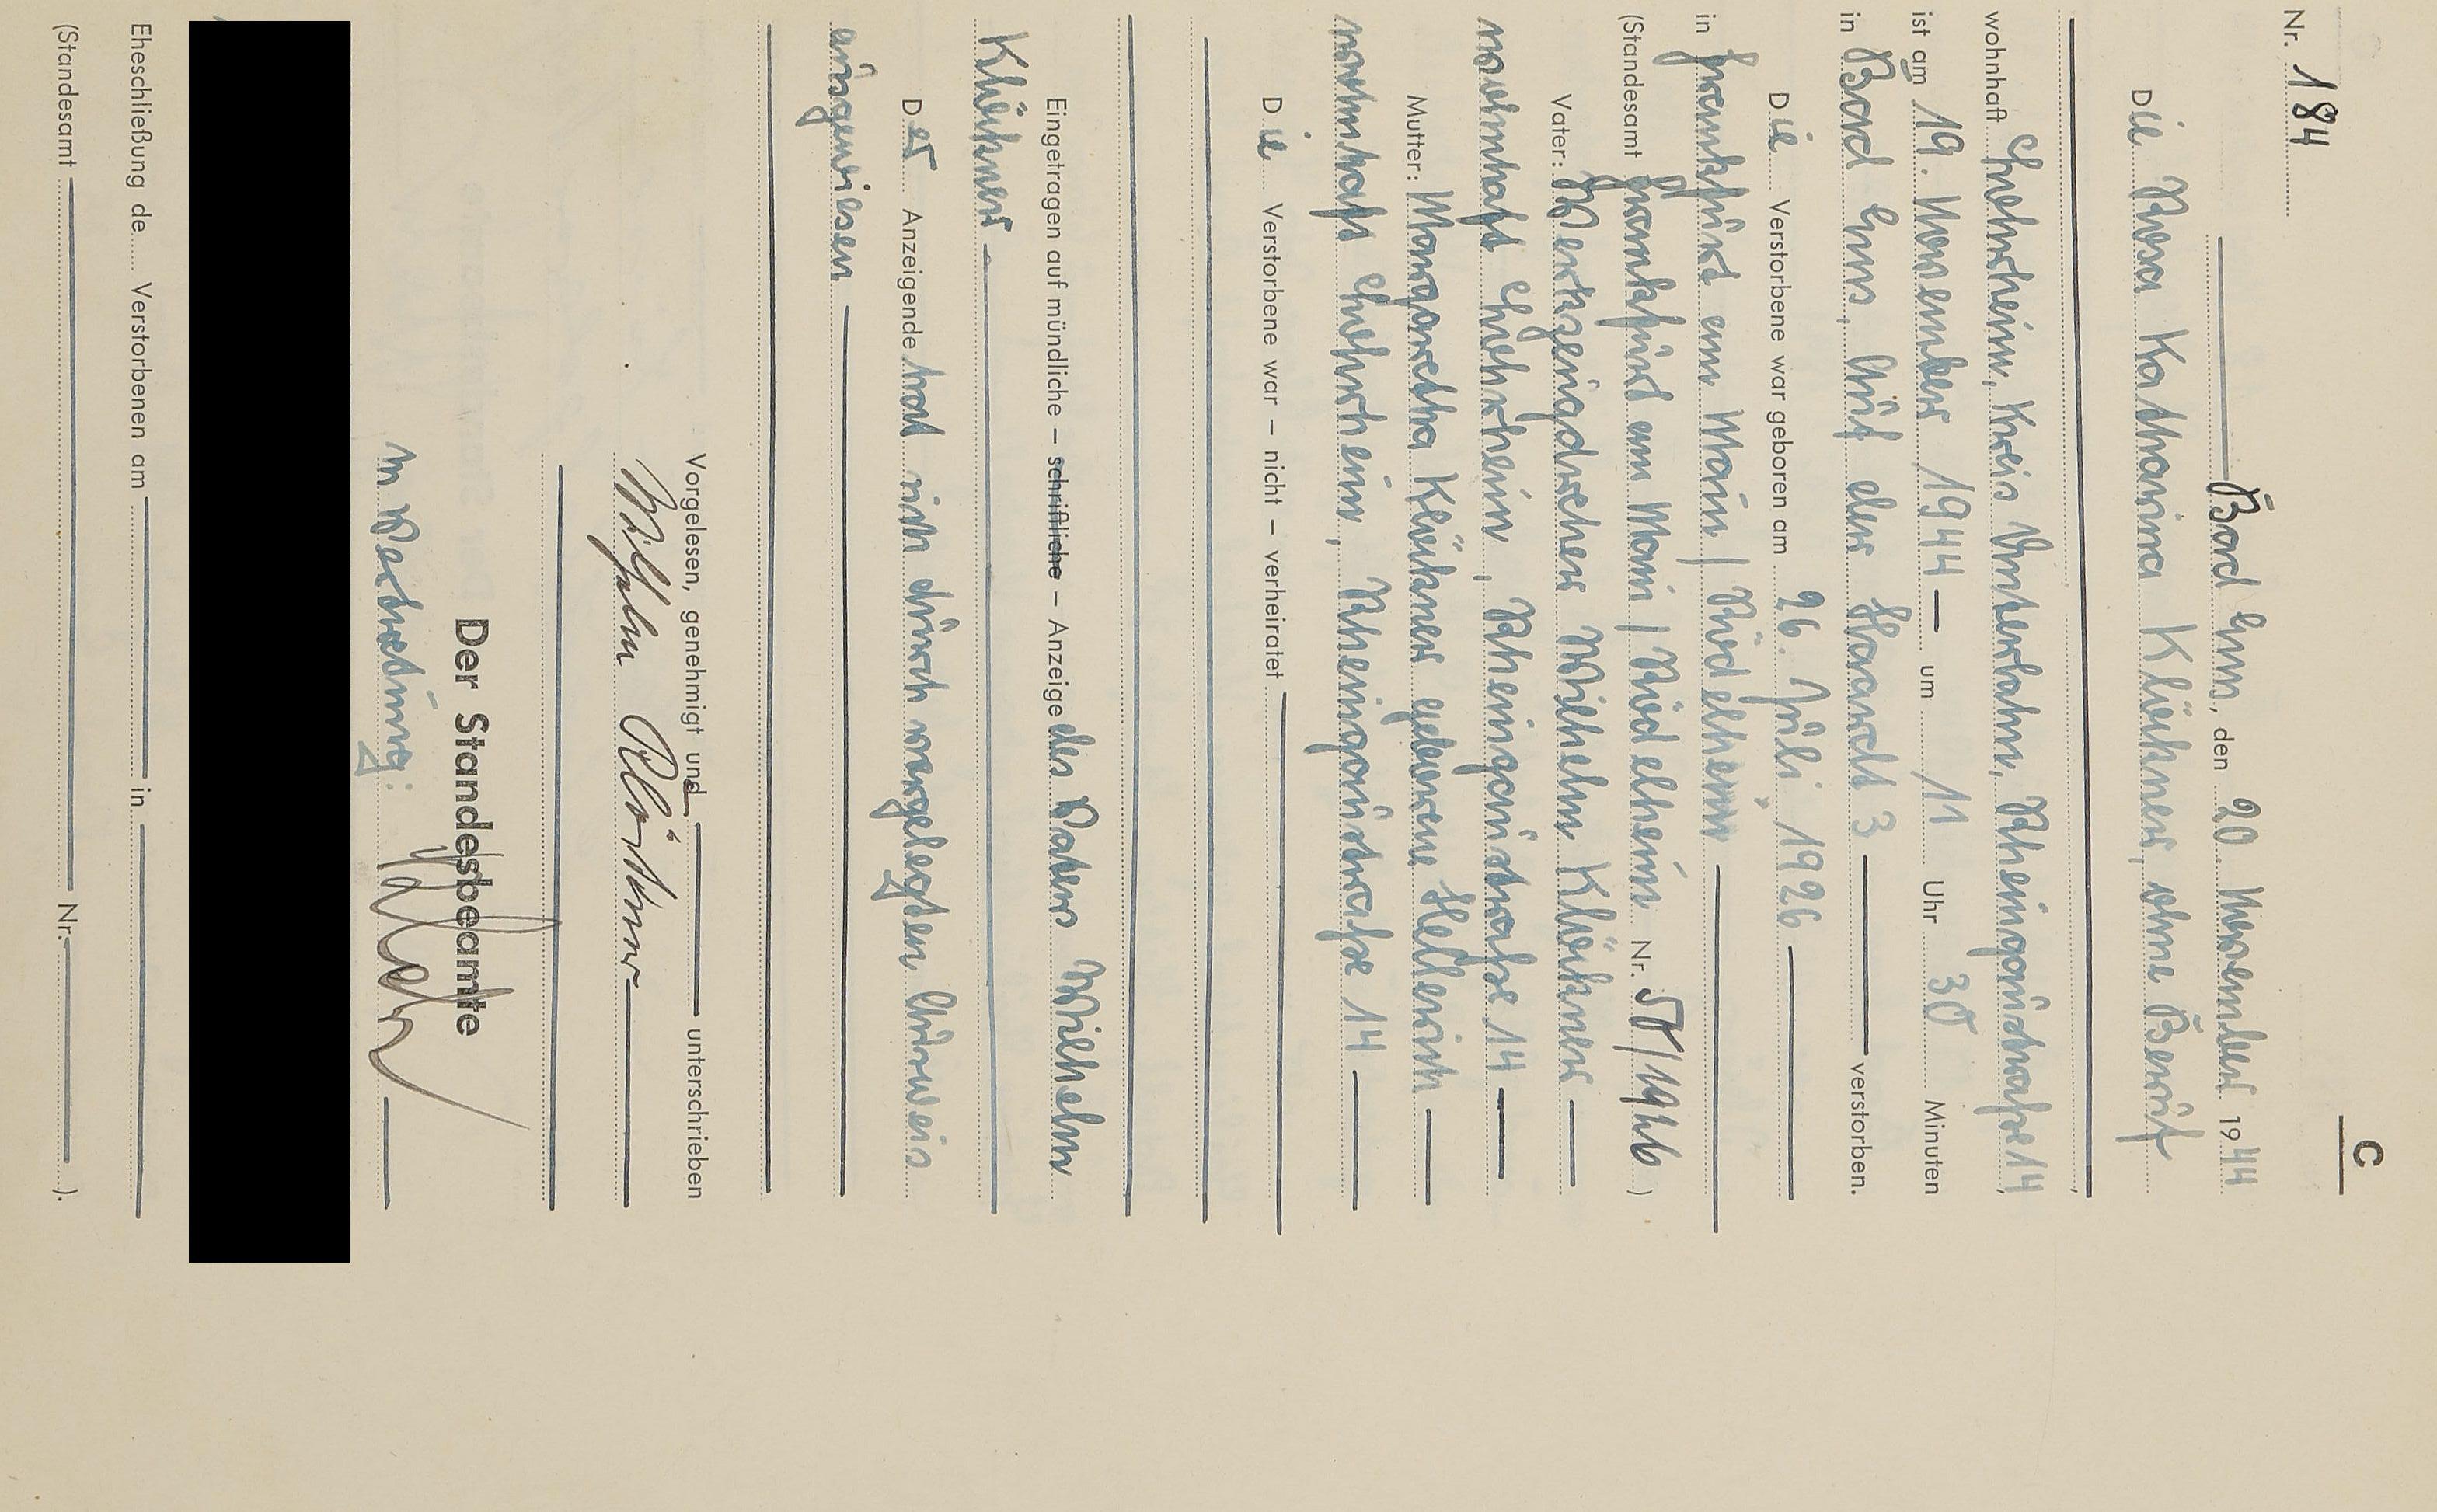 C
Nr. 184
Bad Ems, den 20. November 1944
Die Rosa Katharina Klöckner, ohne Beruf
,
wohnhaft Ehrlhein, Kreis Unterlahn, Rheingaustraße 14,
ist am 19. November 1944 um 11 Uhr 30 Minuten
in Bad Ems, Auf der Hardt 3 verstorben.
Die Verstorbene war geboren am 26. Juli 1926
in Frankfurt am Main / Rödelheim
(Standesamt Frankfurt am Main / Rödelheim Nr. )
Vater: Werkzeugdreher Wilhelm Klöckner
wohnhaft , Rheingaustraße 14
Mutter: Margaretha Klöckner geborene Hellerich
wohnhaft , Rheingaustraße 14
Die Verstorbene war – nicht – verheiratet
Eingetragen auf mündliche – schriftliche – Anzeige des Vaters Wilhelm
Klöckner
Der Anzeigende hat sich durch vorgelegten Ausweis
ausgewiesen
Vorgelesen, genehmigt und unterschrieben
Wilhelm Klöckner
Der Standesbeamte
In Vertretung:
Eheschließung de Verstorbenen am in
(Standesamt Nr. ).